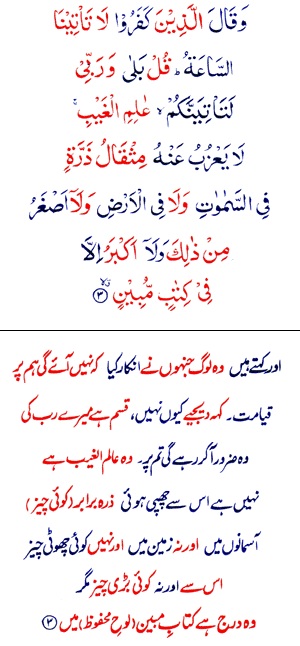 وَقَالَ الَّذِيْنَ كَفَرُوْا لَا تَاْتِيْنَا
السَّاعَةُ ؕ قُلْ بَلٰى وَ رَبِّىْ
لَتَاْتِيَنَّكُمْ ۙ عٰلِمِ الْغَيْبِ ۚ
لَا يَعْزُبُ عَنْهُ مِثْقَالُ ذَرَّةٍ
فِى السَّمٰوٰتِ وَلَا فِى الْاَرْضِ وَلَاۤ اَصْغَرُ
مِنْ ذٰلِكَ وَلَاۤ اَكْبَرُ اِلَّا
فِىْ كِتٰبٍ مُّبِيْنٍ ۙ‏ ﴿۳﴾
اور کہتے ہیں وہ لوگ جنہوں نے انکار کیا کہ نہیں آئے گی ہم پر
قیامت۔ کہہ دیجیے کیوں نہیں، قسم ہے میرے رب کی
وہ ضرور آکر رہے گی تم پر۔ وہ عالم الغیب ہے
نہیں ہے اس سے چھپی ہوئی ذرہ برابر (کوئی چیز)
آسمانوں میں اور نہ زمین میں اور نہیں کوئی چھوٹی چیز
اس سے اور نہ کوئی بڑی چیز مگر
وہ درج ہے کتاب مبین (لوح محفوظ) میں ﴿۳﴾